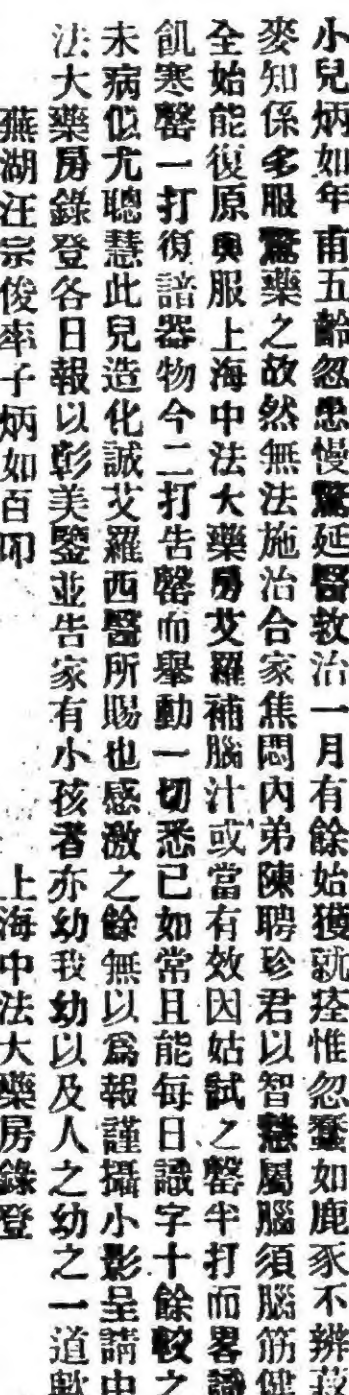 小兒炳如年甫五齡忽患慢驚延醫救治一月有餘始獲就痊惟忽蠢如鹿豕不辨菽
麥知係多服驚藥之故然無法施治合家焦悶內弟陳聘珍君以智慧屬腦須腦筋健
全始能復原與服上海中法大藥房艾羅補腦汁或當有效因姑試之罄半打而畧識
飢寒罄一打復諳器物今二打告罄而舉動一切悉已如常且能每日識字十餘較之
未病似尤聰慧此兒造化誠艾羅西醫所賜也感激之餘無以爲報謹攝小影呈請中
法大藥房錄登各日報以彰美鑒並告家有小孩者亦幼我幼以及人之幼之一道歟
蕪湖汪宗俊率子炳如百叩
上海中法大藥房錄登